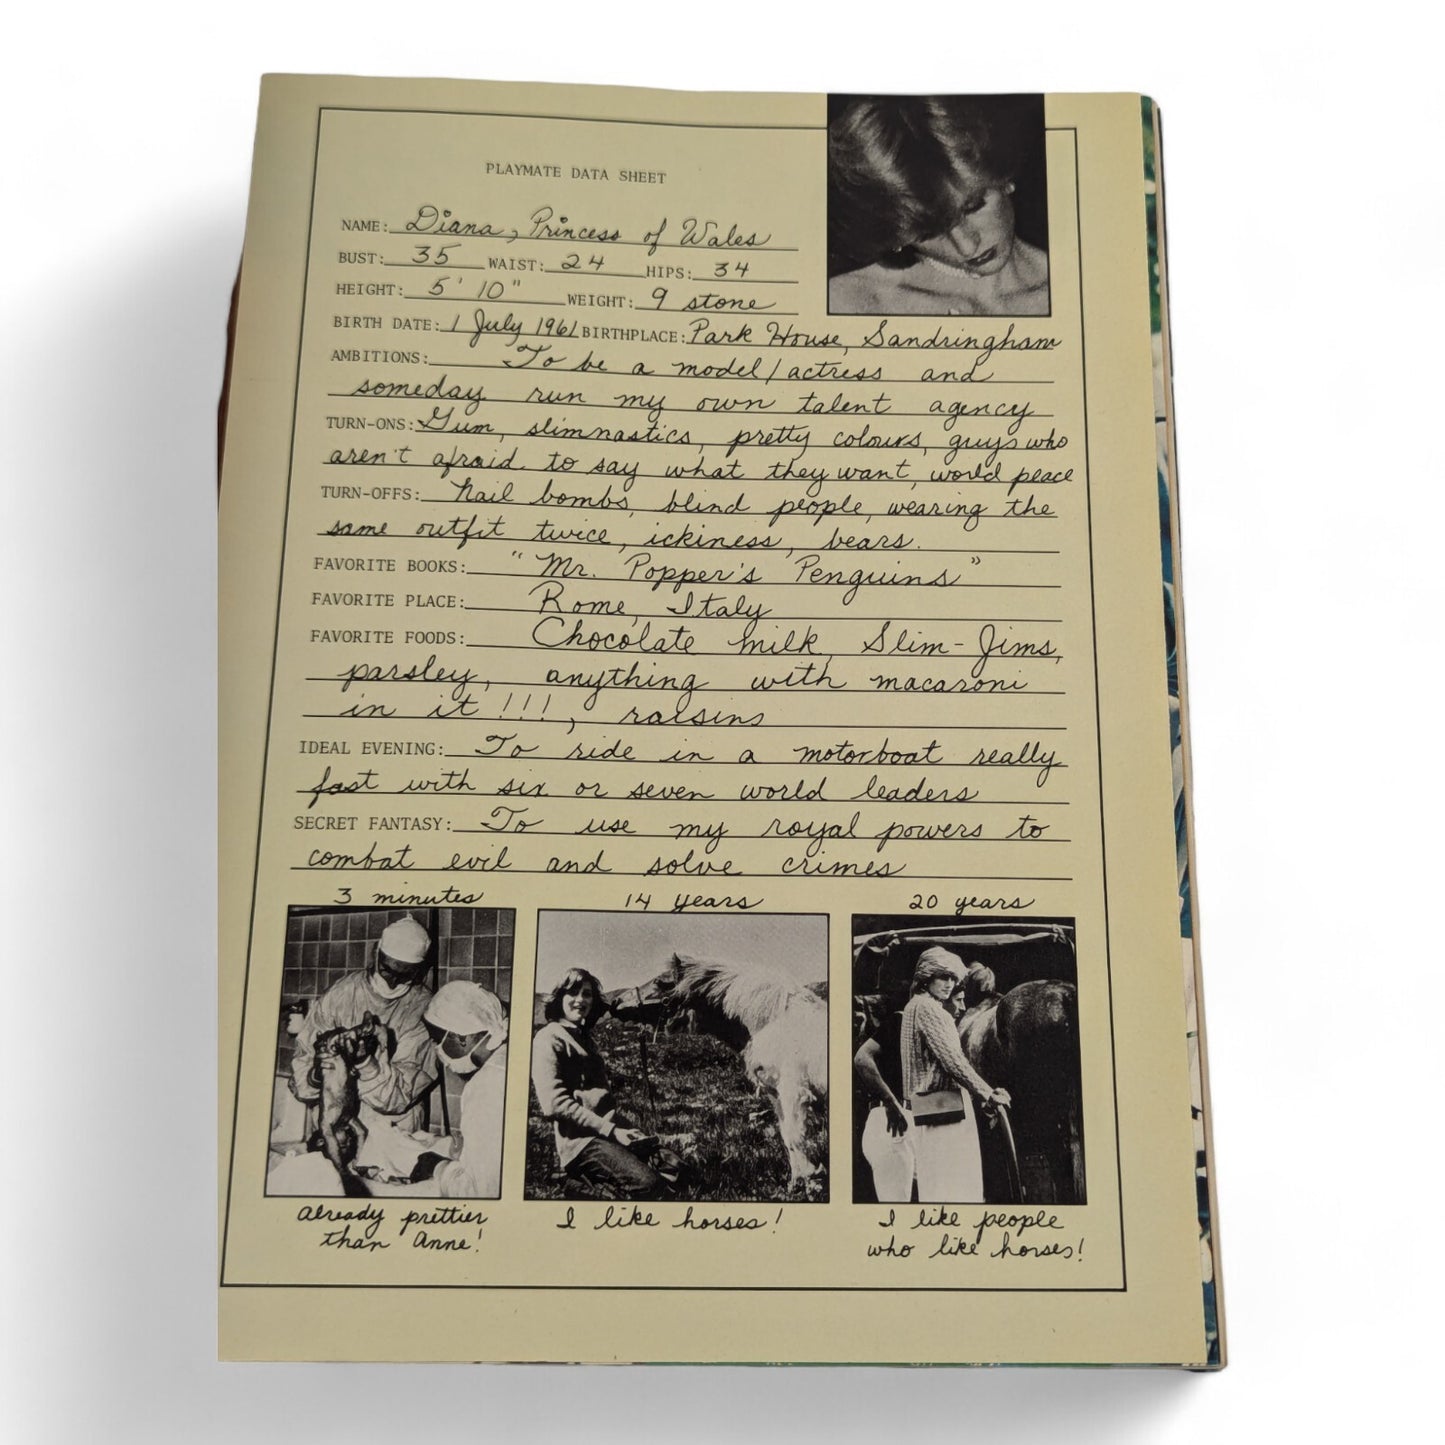 PLAYMATE DATA SHEET
NAME: Diana, Princess of Wales
BUST: 35 WAIST: 24 HIPS: 34
HEIGHT: 5' 10" WEIGHT: 9 stone
BIRTH DATE: 1 July 1961 BIRTHPLACE: Park House, Sandringham
AMBITIONS: To be a model/actress and
someday run my own talent agency
TURN-ONS: Gum, slimnastics, pretty colours, guys who
aren't afraid to say what they want, world peace
TURN-OFFS: Nail bombs, blind people, wearing the
same outfit twice, ickiness, bears.
FAVORITE BOOKS: "Mr. Popper's Penguins"
FAVORITE PLACE: Rome, Italy
FAVORITE FOODS: Chocolate milk, Slim-Jims,
parsley, anything with macaroni
in it!!!, raisins
IDEAL EVENING: To ride in a motorboat really
fast with six or seven world leaders
SECRET FANTASY: To use my royal powers to
combat evil and solve crimes
3 minutes 14 years 20 years
already prettier
than Anne!
I like horses!
I like people
who like horses!